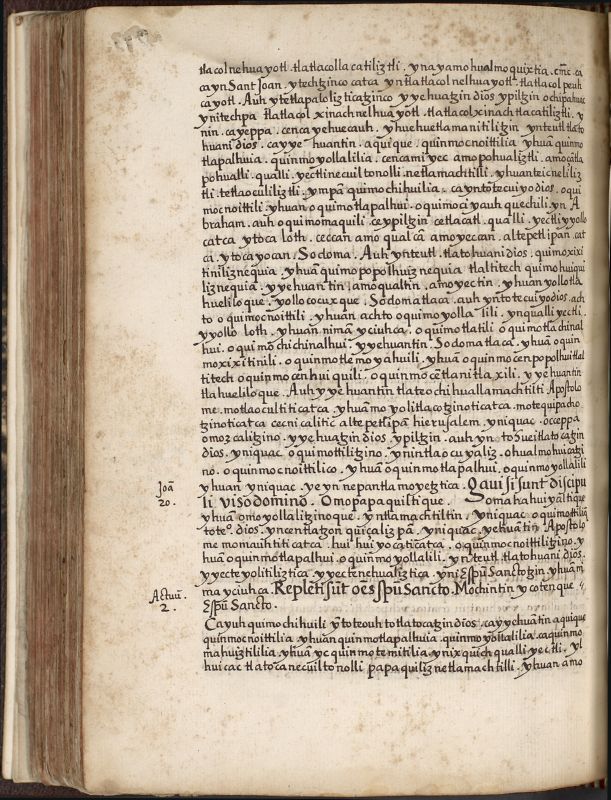 tlacolnehuayotl. tlatlacolla catiliztli. ynayamo hualmoquixtia. ca
ca yn Sant Joan. ytechtzinco catca yn tlatlacolnelhuayotl. tlatlacolpeuh
cayotl. Auh yn tetlapaloliztica tzinco yyehuatzin dios ypiltzin ochipahuac
ynitechpa tlatlacolxinachnelhuayotl. tlatlacolxinachtlacatiliztli. y
nin. cayeppa. cenca yehuecauh. yhuehuetlamanitilitzin ynteutl tlato
huani dios. ca yyehuantin. aquique. quinmocnoittilia yhuā quinmo
tlapalhuia. quinmoyollalilia. cencamiyec amo pohualiztli. amo çā tla
pohualli. qualli. yectli necuiltonolli. netlamachtilli. yhuan teicneliliz
tli. tetlaocuiliztli. ympā quimochihuilia. ca yn totecuiyo dios. oqui
mocnoittili. yhuan oquimotlapalhui. oquimoçiyauhquechili. yn A
braham. auh oquimomaquili. ce ypiltzin cetlacatl. qualli. yectli yyollo
catca ytoca loth. ceccan amo qualcā amo yeccan. altepetl ipan. cat
ca. ytocayocan Sodoma. Auh ynteutl. tlatohuani dios. quimoxixi
tiniliznequia. yhuā quimopopolhuiznequia tlaltitech quimohuiqui
liznequia. yyehuantin. amo qualtin. amo yectin. yhuan yollotla
hueliloque. yollococuxque. Sodoma tlaca. auh yn totecuiyo dios. ach
to oquimocnoittili. yhuan achto oquimoyollalili. yn qualli yectli.
yyollo loth. yhuan nimā yciuhca. oquimotlatili oquimotlachinal
hui. oquimochichinalhui. yyehuantin. Sodoma tlaca. yhuā oquin
moxixitinili. oquinmotlemoyahuili. yhuā oquinmocenpopolhui tlal
titech oquinmocenhuiquili. oquinmocentlanitlaxili. yyehuantin
tlahueliloque. Auh yyehuantin tlateochihuallamachtilti Apostolo
me. motlaocultiticatca. yhuā moyolitlacotzinoticatca. motequipacho
tzinoticatca cecni calitic altepetl ipā hierusalem. yniquac. oceppa
omozcalitzino. yyehuatzin dios ypiltzin. auh yn totzuei tlatocatzin
dios. yniquac oquimottilitzino. ynintlaocuyaliz. ohualmohuicatzi
no. oquinmocnoittilico. yhuā oquinmotlapalhui. oquinmoyollalili
yhuan yniquac. ye yn nepantla moyetztica. Gauisi sunt discipu
li viso domino. Omopapaquiltique. Somahahuiyaltique
yhuā omoyollalitzinoque. yntlamachtiltin. yniquac oquimottiliquē
toteº. dios. yncentlatzonquiçalizpā. yniquac. yehuātin. Apostolo
me momauhtiticatca. huihuiyocaticatca. oquinmocnoittilitzino. y
huā oquinmotlapalhui. oquinmoyollalili. yn teutl. tlatohuani dios.
yyecteyolitiliztica yyectenehualiztica. yn espūsancto tzin. yhuā ni
ma yciuhca Repleti sūt oēs spū Sancto. Mochintin ycotenque
espū Sancto.
Ca yuh quimochihuili yn toteouh totlatocatzin dios. ca yyehuātin aquique
quinmocnoittilia yhuan quinmotlapalhuia. quinmoyollalilia. ca quinmo
mahuiztililia. yhuā yc quinmotemitilia. ynixquich qualli yectli. yl
huicac tlatocanecuiltonolli papaquiliznetlamachtilli. yhuan amo
Joā
20.
Actuū.
2.